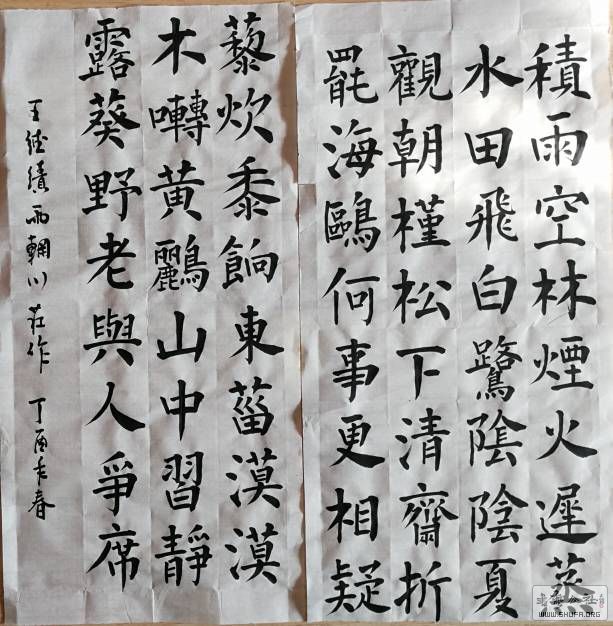 積雨空林煙火遲蒸
水田飛白鷺陰陰夏
觀朝槿松下清齋折
罷海鷗何事更相疑
藜炊黍餉東菑漠漠
木囀黃鸝山中習靜
露葵野老與人爭席
王維積雨輞川莊作 丁酉年春
WWW.SHUFA.ORG